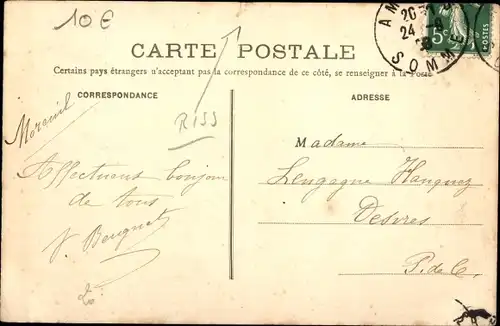 10€
CARTE POSTALE
Certains pays étrangers n'acceptant pas la correspondance de ce côté, se renseigner à la Poste
CORRESPONDANCE
ADRESSE
RISS
Moreuil
Affectueux bonjour
de tous
Madame
Lengagne Hanquez
Desvres
P. de C.
20
24 - 8
SOMME
5c
POSTES